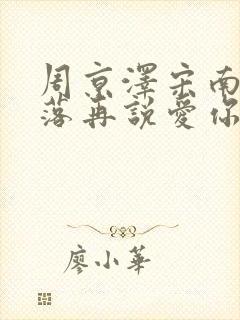 周京澤宋南
落再說愛你
廖小華